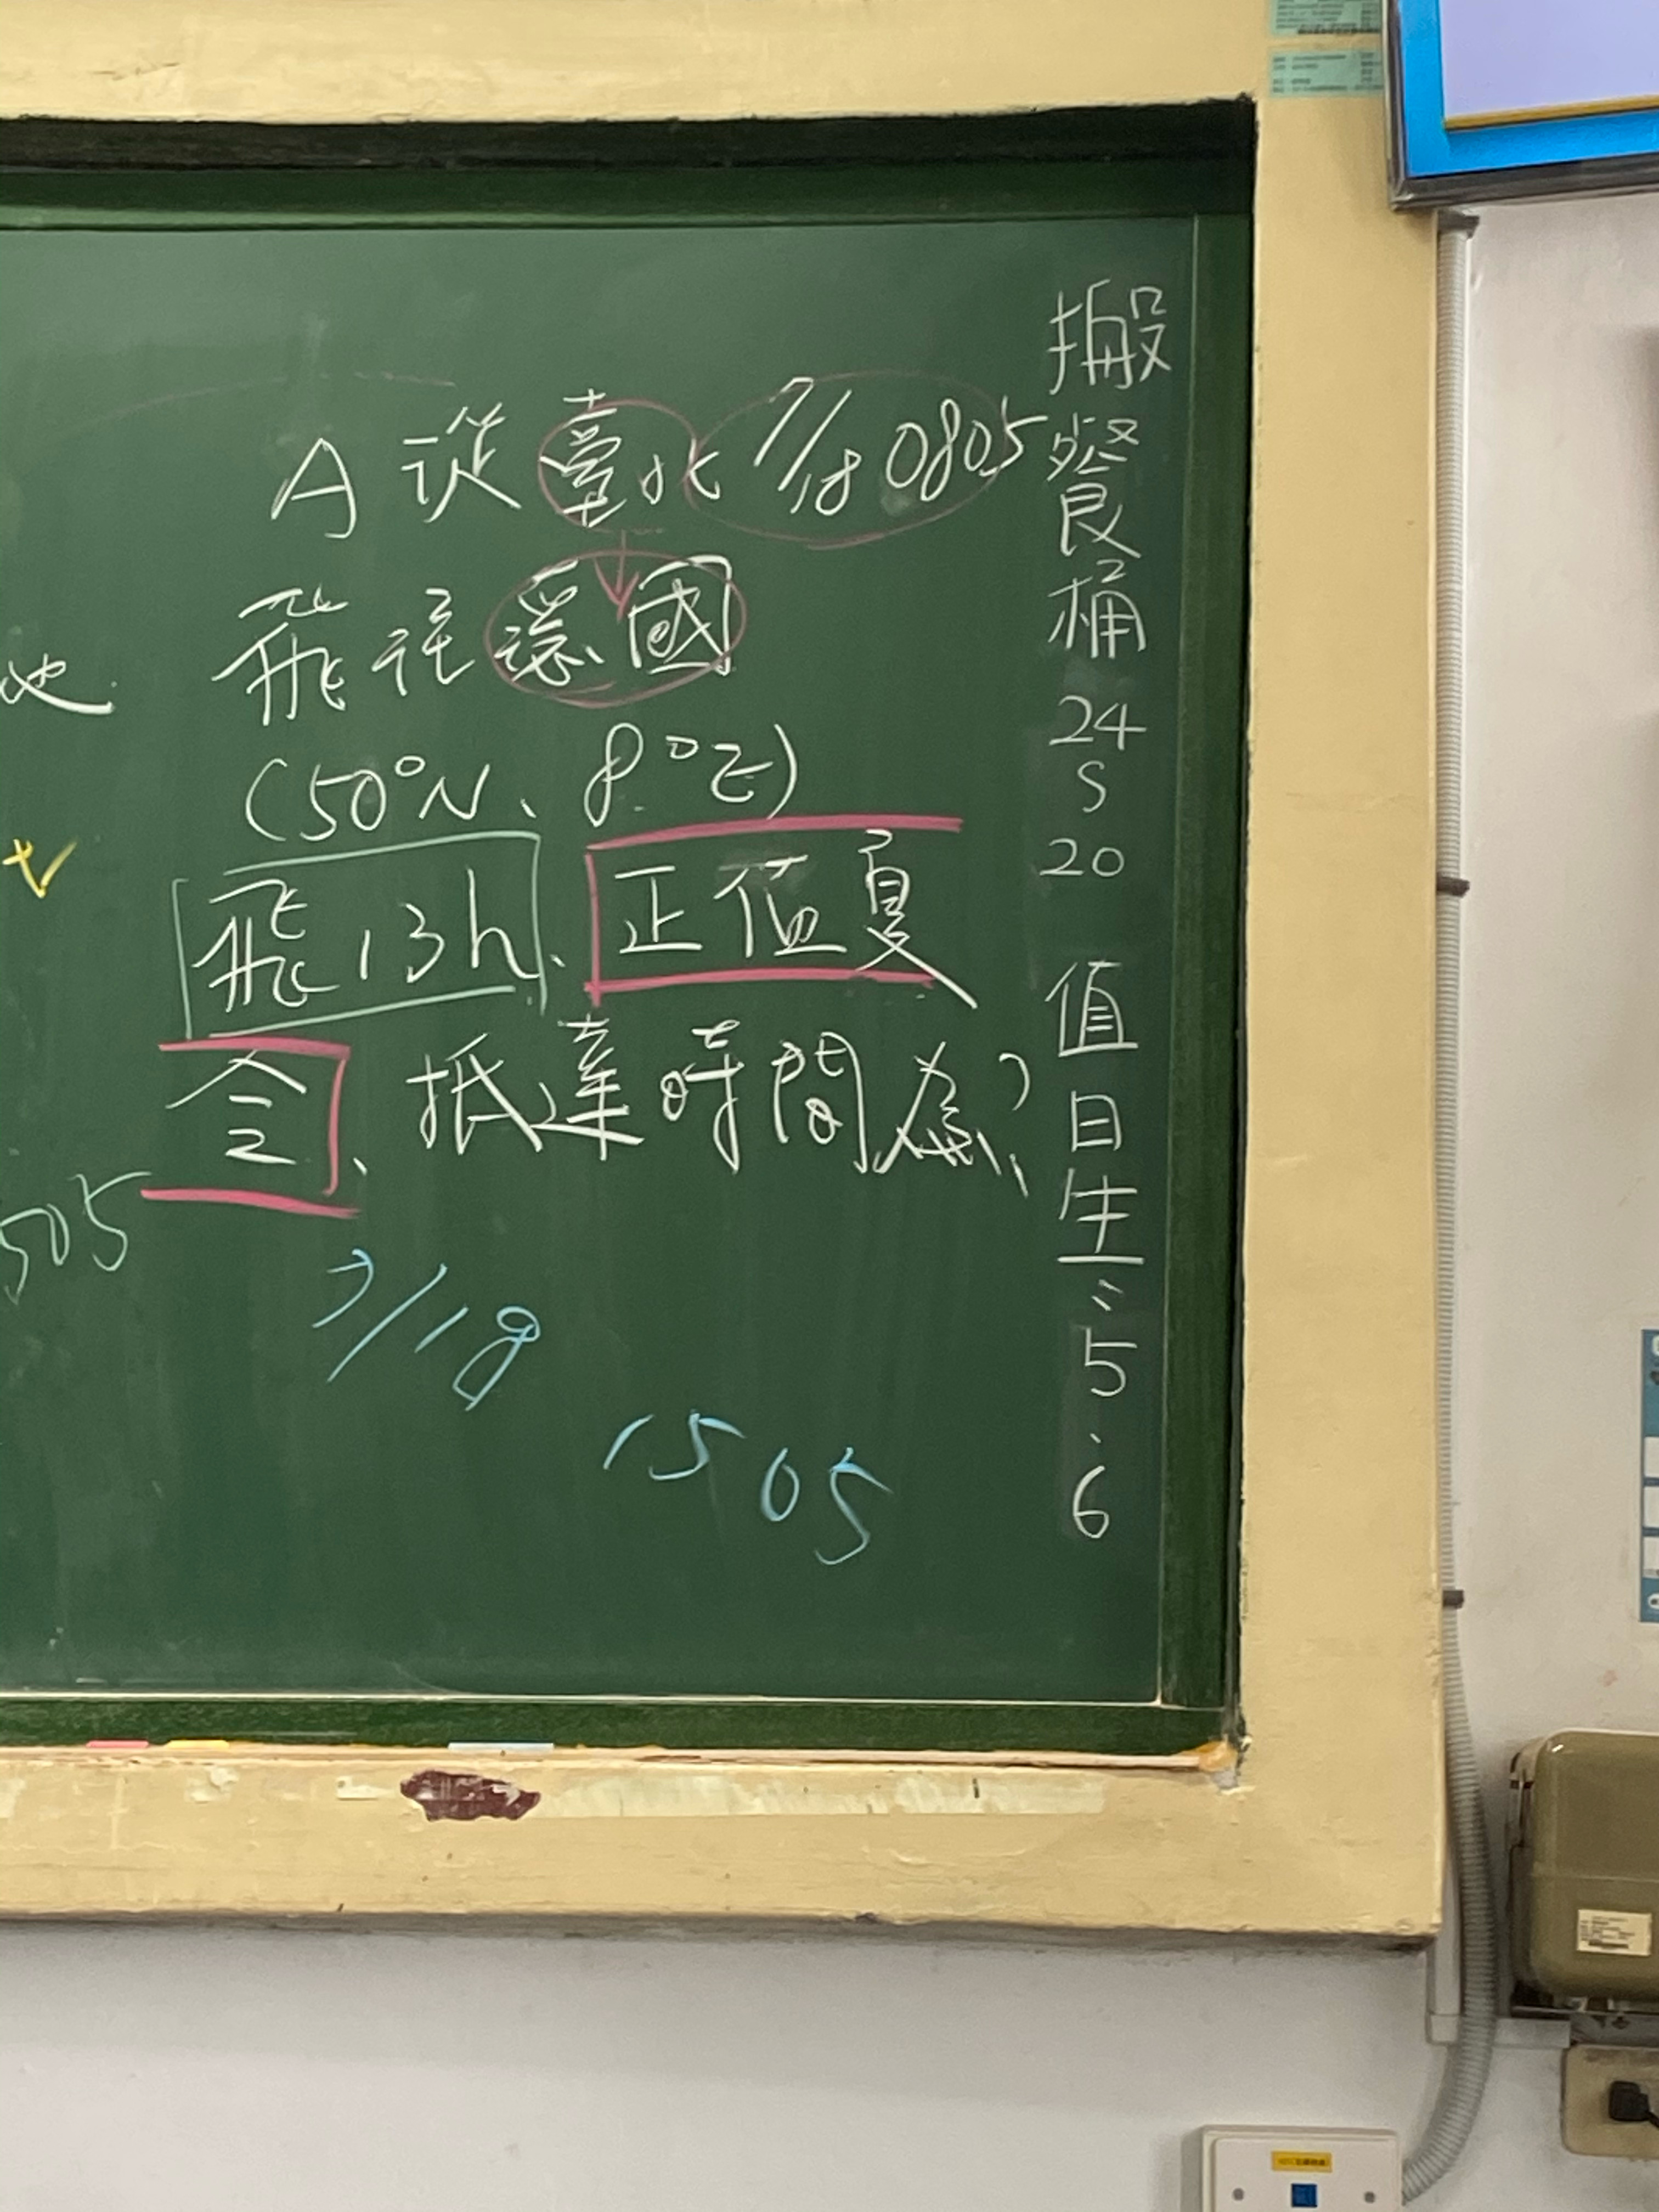 A 從臺北 7/18 0805
飛往德國
(50°N、8°E)
飛13h、正值夏
令、抵達時間為?
7/18
1505
505
搬餐桶
24
S
20
值日生:5、6